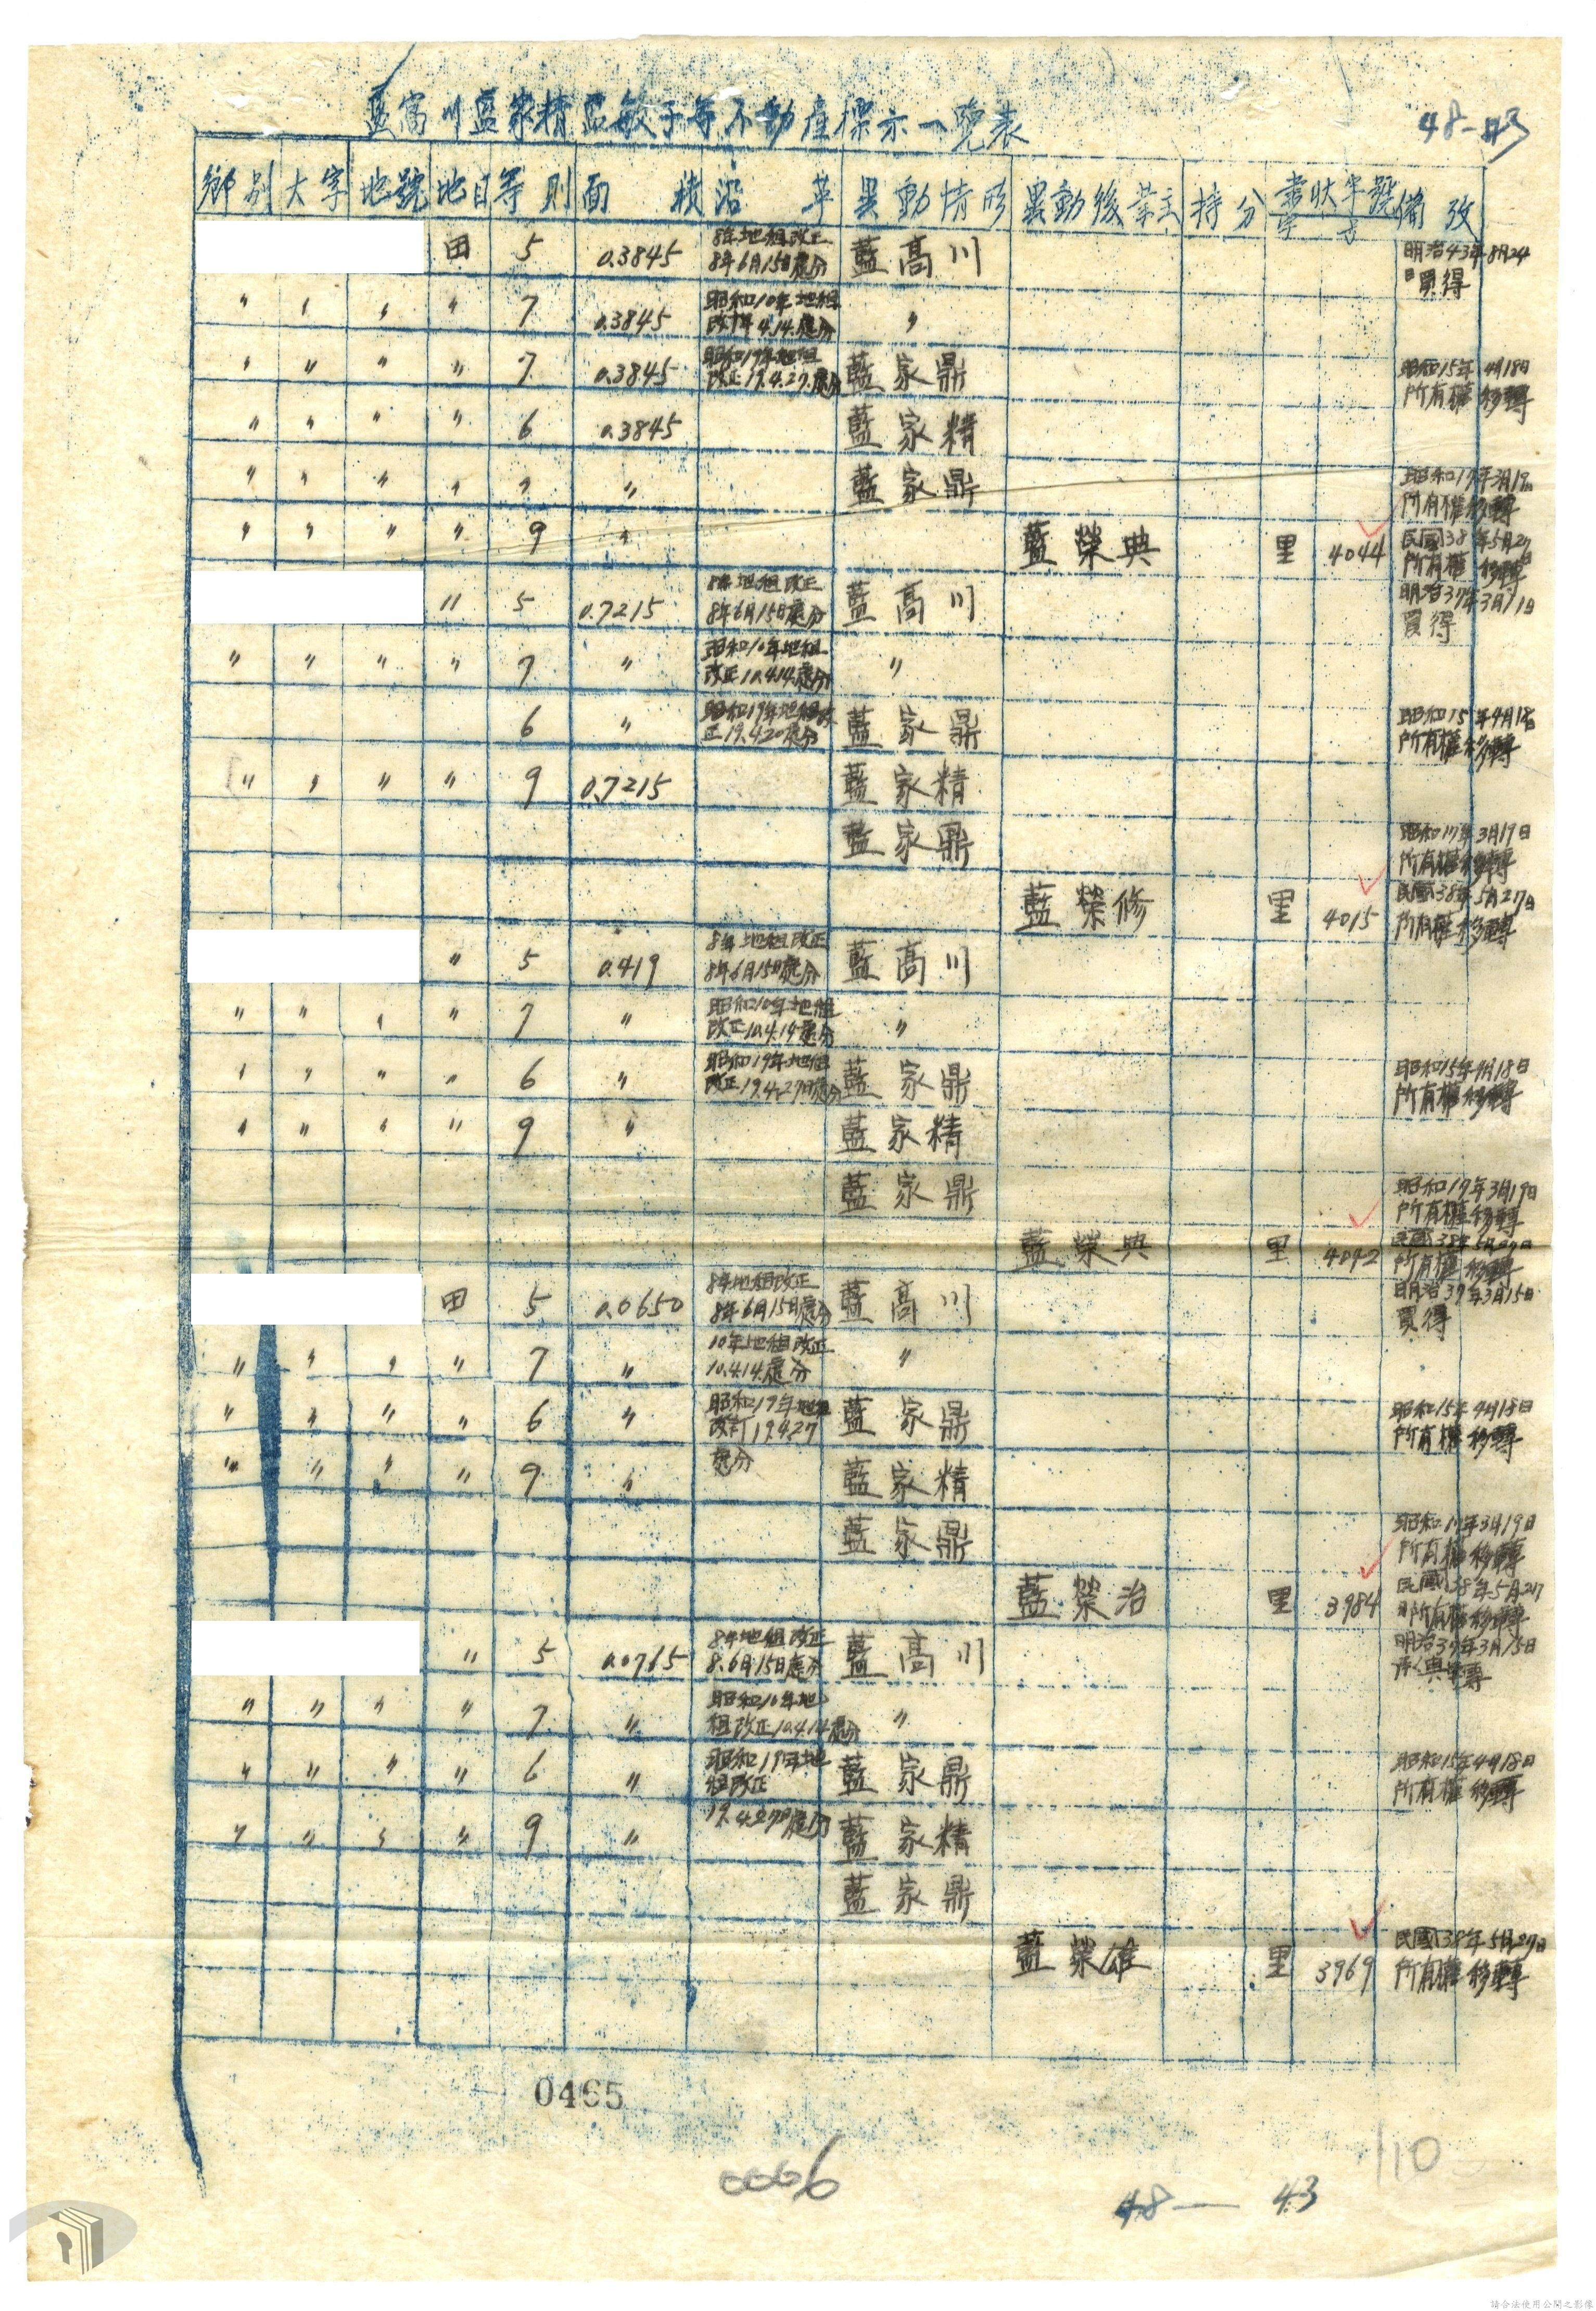 藍高川藍家精藍敏子等不動產標示一覽表
48-43
鄉別 大字 地號 地目 等則 面積 沿革 異動情形 異動後業主 持分 書狀字號 備攷
田 5 0.3845 8年地租改正 8年6月15日處分 藍高川 明治43年8月24日買得
〃 〃 〃 〃 7 0.3845 昭和10年地租改正 4.14.處分 〃
〃 〃 〃 〃 7 0.3845 昭和19年地租改正19.4.27.處分 藍家鼎 昭和15年4月18日所有權移轉
〃 〃 〃 〃 6 0.3845 藍家精
〃 〃 〃 〃 〃 〃 藍家鼎 昭和17年3月19日所有權移轉
〃 〃 〃 〃 9 〃 藍榮典 里 4044 民國38年5月27日所有權移轉
〃 5 0.7215 8年地租改正 8年6月15日處分 藍高川 明治37年3月11日買得
〃 〃 〃 〃 7 〃 昭和10年地租改正10.4.14.處分 〃
6 〃 昭和19年地租改正19.4.20處分 藍家鼎 昭和15年4月18日所有權移轉
〃 〃 〃 〃 9 0.7215 藍家精
藍家鼎 昭和17年3月19日所有權移轉
藍榮修 里 4015 民國38年5月27日所有權移轉
〃 5 0.419 8年地租改正 8年6月15日處分 藍高川
〃 〃 〃 〃 7 〃 昭和10年地租改正10.4.14處分 〃
〃 〃 〃 〃 6 〃 昭和19年地租改正19.4.27日處分 藍家鼎 昭和15年4月18日所有權移轉
〃 〃 〃 〃 9 〃 藍家精
藍家鼎 昭和17年3月19日所有權移轉
藍榮典 里 4042 民國38年5月27日所有權移轉
田 5 0.0650 8年地租改正 8年6月15日處分 藍高川 明治37年3月15日買得
〃 〃 〃 〃 7 〃 10年地租改正 10.4.14.處分 〃
〃 〃 〃 〃 6 〃 昭和19年地租改訂19.4.27處分 藍家鼎 昭和15年4月18日所有權移轉
〃 〃 〃 〃 9 〃 藍家精
藍家鼎 昭和17年3月19日所有權移轉
藍榮治 里 3984 民國38年5月27日所有權移轉
〃 5 0.0765 8年地租改正 8.6月15日處分 藍高川 明治37年3月15日
〃 〃 〃 〃 7 〃 昭和10年地租改正10.4.14處分 〃
〃 〃 〃 〃 6 〃 昭和19年地租改正19.4.27日處分 藍家鼎 昭和15年4月18日所有權移轉
〃 〃 〃 〃 9 〃 藍家精
藍家鼎
藍榮雄 里 3969 民國38年5月27日所有權移轉
0465
0006
110
48—43
請合法使用公開之影像